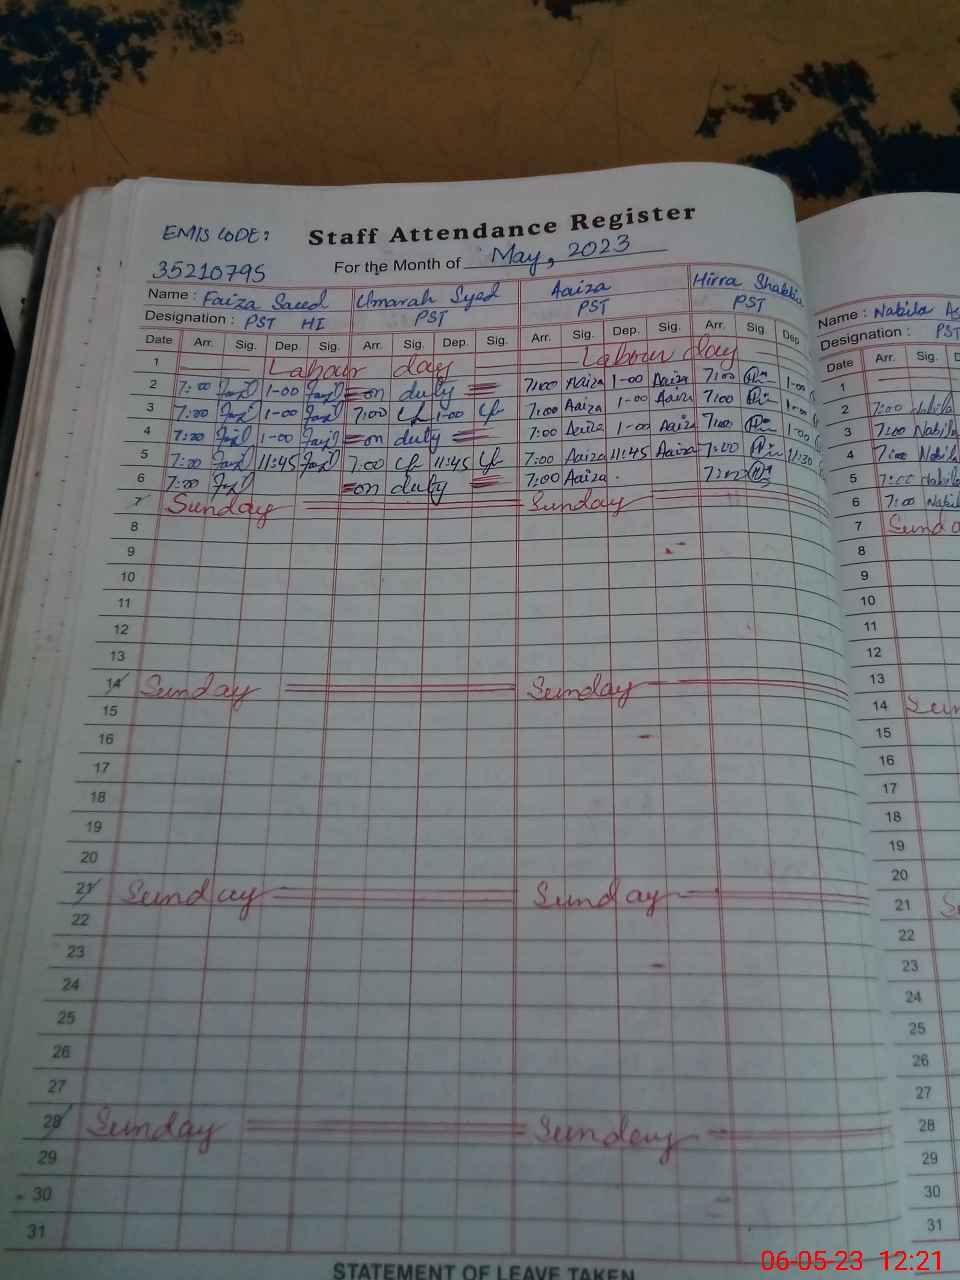 EMIS CODE:
35210795
Staff Attendance Register
For the Month of May, 2023
Name : Faiza Saeed Umarah Syed Aaiza Hirra
Designation : PST HI PST PST PST
Date Arr. Sig. Dep. Sig. Arr. Sig. Dep. Sig. Arr. Sig. Dep. Sig. Arr. Sig. Dep
1 Labour day Labour day
2 7:00 1-00 on duty 7:00 Aaiza 1-00 Aaiza 7:00 1-00
3 7:00 1-00 7:00 1-00 7:00 Aaiza 1-00 Aaiza 7:00 1-00
4 7:00 1-00 on duty 7:00 Aaiza 1-00 Aaiza 7:00 1-00
5 7:00 11:45 7:00 11:45 7:00 Aaiza 11:45 Aaiza 7:00 11:30
6 7:00 on duty 7:00 Aaiza 7:00
7 Sunday Sunday
8
9
10
11
12
13
14 Sunday Sunday
15
16
17
18
19
20
21 Sunday Sunday
22
23
24
25
26
27
28 Sunday Sunday
29
30
31
STATEMENT OF LEAVE TAKEN
Name : Nabila
Designation : PST
Date Arr. Sig.
1
2 7:00 Nabila
3 7:00 Nabila
4 7:00 Nabila
5 7:00 Nabila
6 7:00
7
8
9
10
11
12
13
14
15
16
17
18
19
20
21
22
23
24
25
26
27
28
29
30
31
06-05-23 12:21